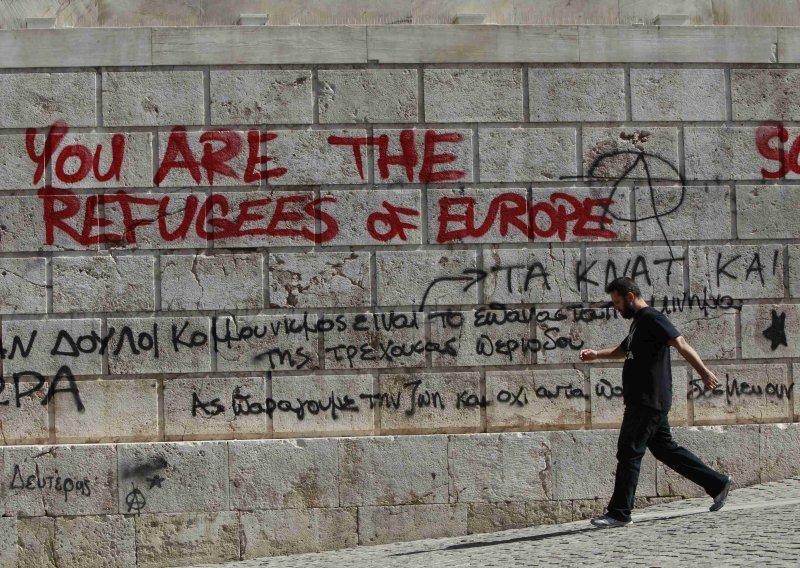 You ARE THE
REFUGEES of EUROPE
ΤΑ ΚΝΑΤ ΚΑΙ
ΔΟΥΛΟΙ Κομμουνισμος είναι το επαναστατι κίνημα
της τρεχουσας περιοδου
ΩΡΑ
Ας παραγουμε την Ζωη και οχι αυτα που δεσμευουν
Δευτέρας